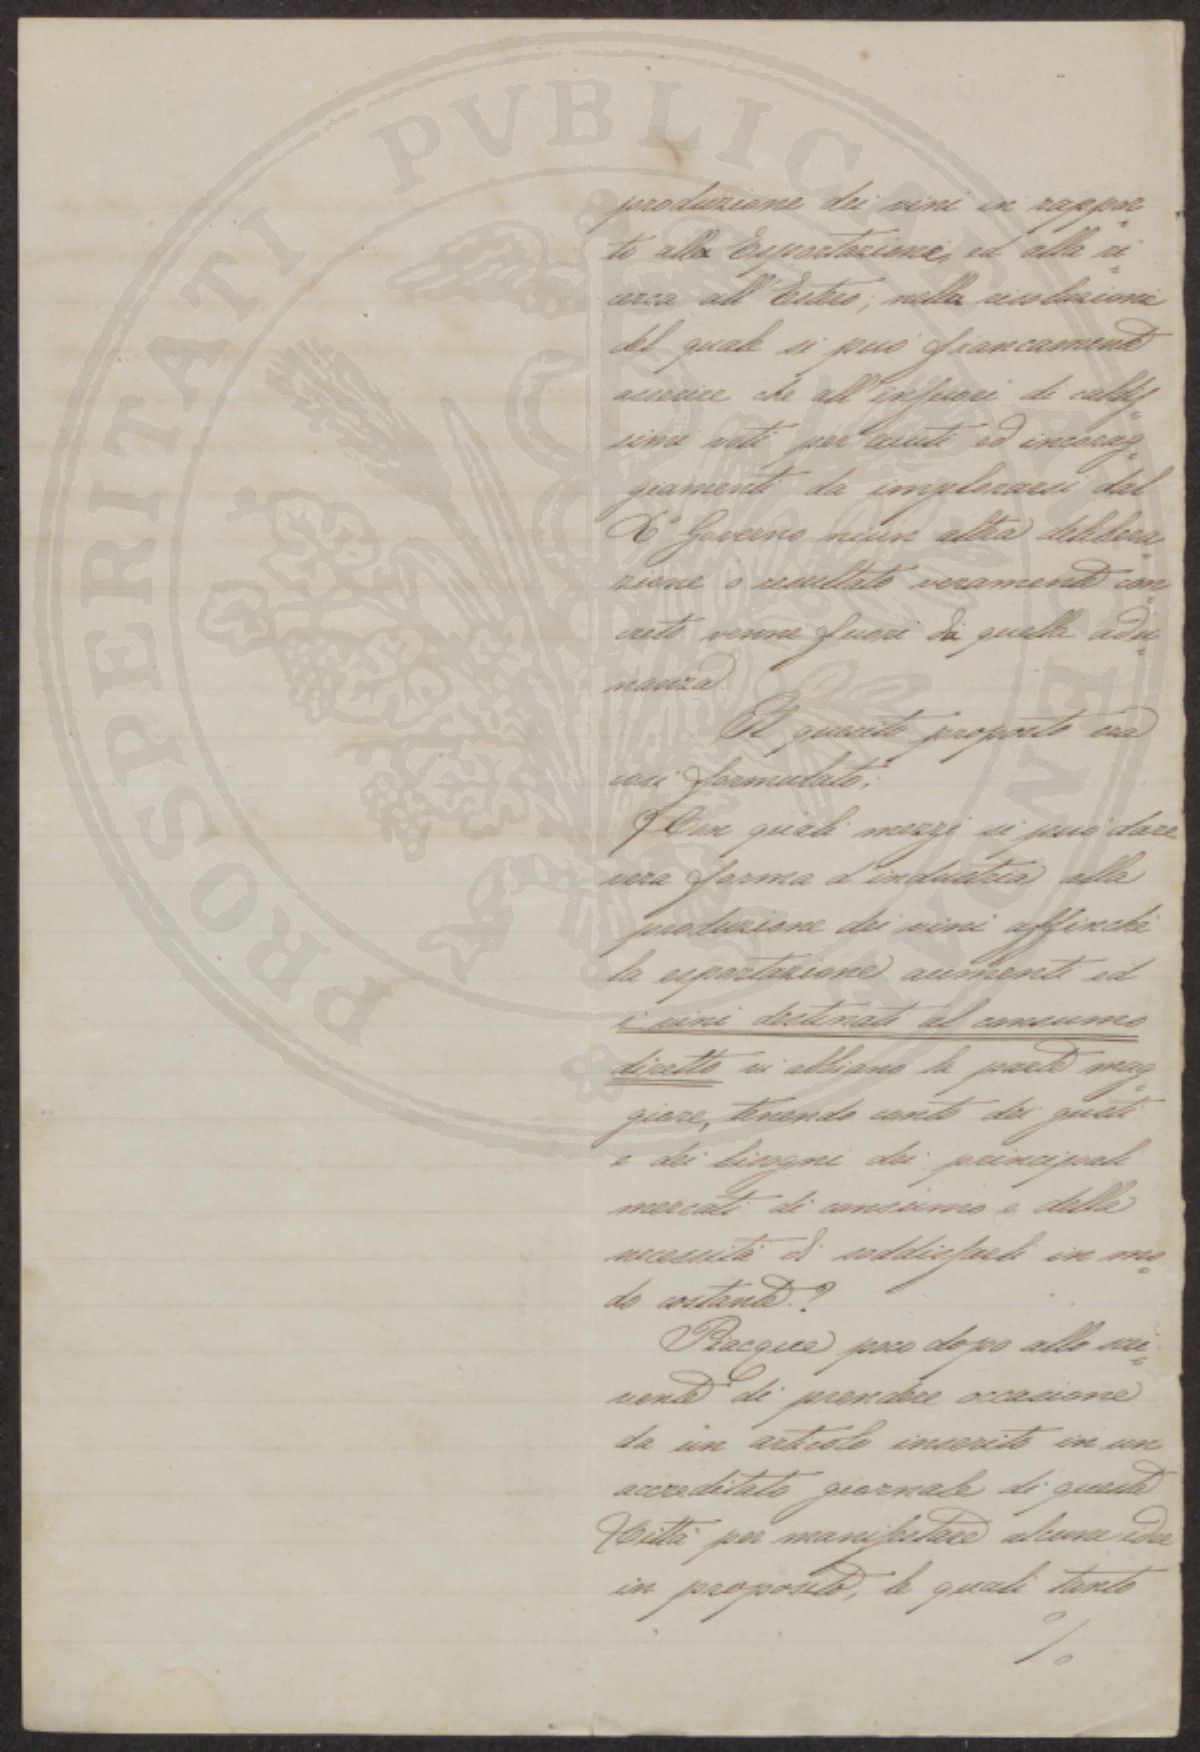 PROSPERITATI PVBLICAE AVGENDAE
produzione dei vini in rappor
to alla Esportazione, ed alla ri
cerca all'Estero; nella risoluzione
del quale si può francamente
asserire che all'infuori di caldis
simi voti per aiuti ed incorag
giamenti da implorarsi dal
R.º Governo niun altra delibera
zione o resultato veramente con
creto venne fuori da quella adu
nanza.
Il quesito proposto era
così formulato:
"Con quali mezzi si può dare
vera forma d'industria alla
produzione dei vini affinchè
la esportazione aumenti ed
i vini destinati al consumo
diretto vi abbiano la parte mag
giore, tenendo conto dei gusti
e dei bisogni dei principali
mercati di consumo e della
necessità di soddisfarli in mo
do costante?
Piacque poco dopo allo scri
vente di prendere occasione
da un articolo inserito in un
accreditato giornale di questa
Città per manifestare alcune idee
in proposito, le quali tanto
%